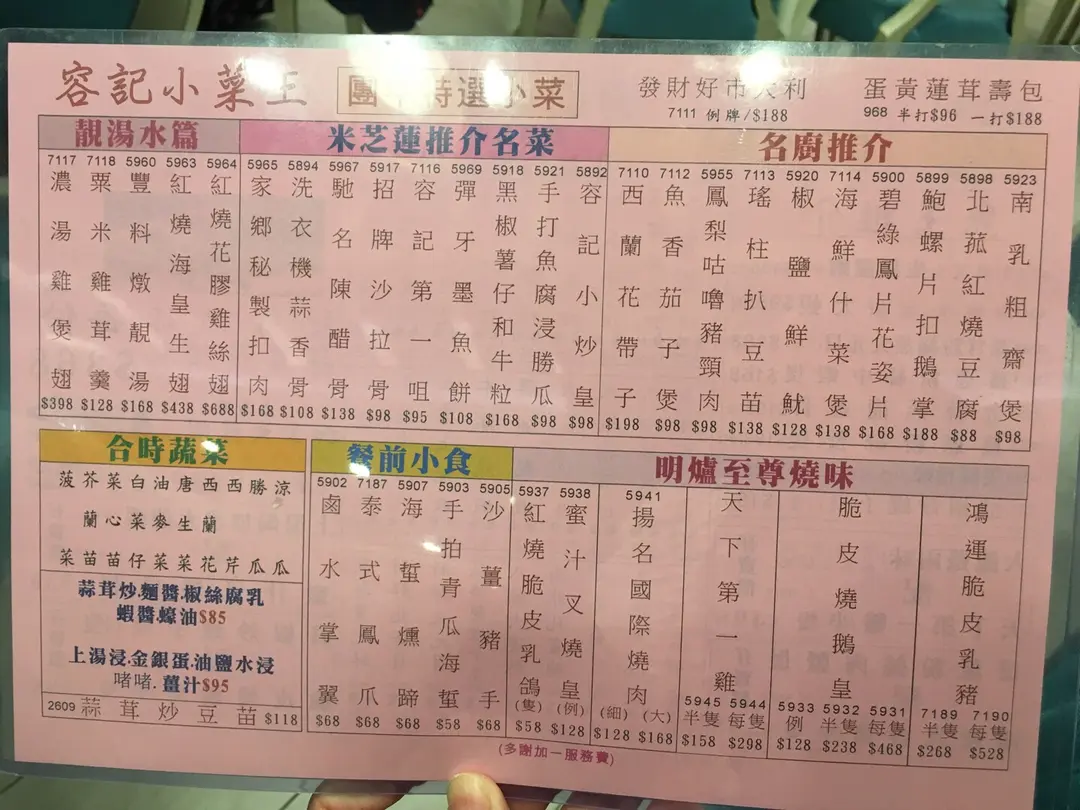 容記小菜王
團 特選小菜
發財好市大利
7111 例牌/$188
蛋黃蓮茸壽包
968 半打$96 一打$188
靚湯水篇
7117 濃湯雞煲翅 $398
7118 粟米雞茸羹 $128
5960 豐料燉靚湯 $168
5963 紅燒海皇生翅 $438
5964 紅燒花膠雞絲翅 $688
米芝蓮推介名菜
5965 家鄉秘製扣肉 $168
5894 洗衣機蒜香骨 $108
5967 馳名陳醋骨 $138
5917 招牌沙拉骨 $98
7116 容記第一咀 $95
5969 彈牙墨魚餅 $108
5918 黑椒薯仔和牛粒 $168
5921 手打魚腐浸勝瓜 $98
5892 容記小炒皇 $98
名廚推介
7110 西蘭花帶子 $198
7112 魚香茄子煲 $98
5955 鳳梨咕嚕豬頸肉 $98
7113 瑤柱扒豆苗 $138
5920 椒鹽鮮魷 $128
7114 海鮮什菜煲 $138
5900 碧綠鳳片花姿片 $168
5899 鮑螺片扣鵝掌 $188
5898 北菰紅燒豆腐 $88
5923 南乳粗齋煲 $98
合時蔬菜
菠芥菜白油唐西西勝涼
蘭心菜麥生蘭
菜苗苗仔菜菜花芹瓜瓜
蒜茸炒.麵醬.椒絲腐乳
蝦醬.蠔油$85
上湯浸.金銀蛋.油鹽水浸
啫啫.薑汁$95
2609 蒜茸炒豆苗 $118
餐前小食
5902 鹵水掌翼 $68
7187 泰式鳳爪 $68
5907 海蜇燻蹄 $68
5903 手拍青瓜海蜇 $58
5905 沙薑豬手 $68
明爐至尊燒味
5937 紅燒脆皮乳鴿(隻) $58
5938 蜜汁叉燒皇(例) $128
5941 揚名國際燒肉
(細) (大)
$128 $168
天下第一雞
5945 5944
半隻 每隻
$158 $298
脆皮燒鵝皇
5933 5932 5931
例 半隻 每隻
$128 $238 $468
鴻運脆皮乳豬
7189 7190
半隻 每隻
$268 $528
(多謝加一服務費)